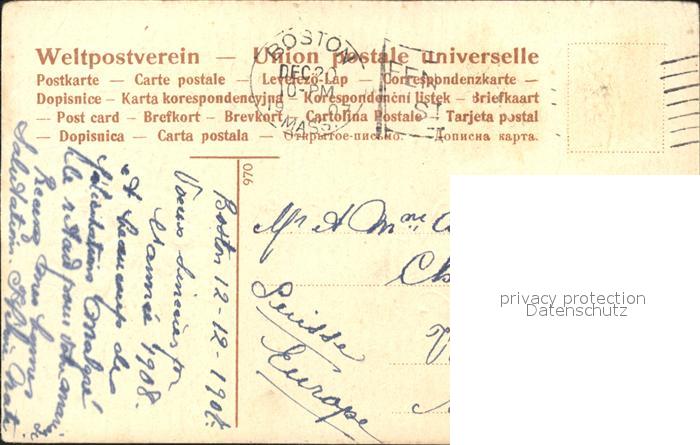 Weltpostverein — Union postale universelle
Postkarte — Carte postale — Levelező-Lap — Correspondenzkarte —
Dopisnice — Karta korespondencyjna — Korespondenční lístek — Briefkaart
— Post card — Brefkort — Brevkort — Cartolina Postale — Tarjeta postal
— Dopisnica — Carta postala — Открытое-письмо. — Дописна карта.
BOSTON
DEC 20
10-PM
MASS.
970
Boston 12-12-190
Voeux sincères pr
l'année 1908.
et beaucoup de
félicitations malgré
le retard pour votre
Recevez mes bonnes
Salutations
Mr & Mme
Suisse
Europe
privacy protection
Datenschutz